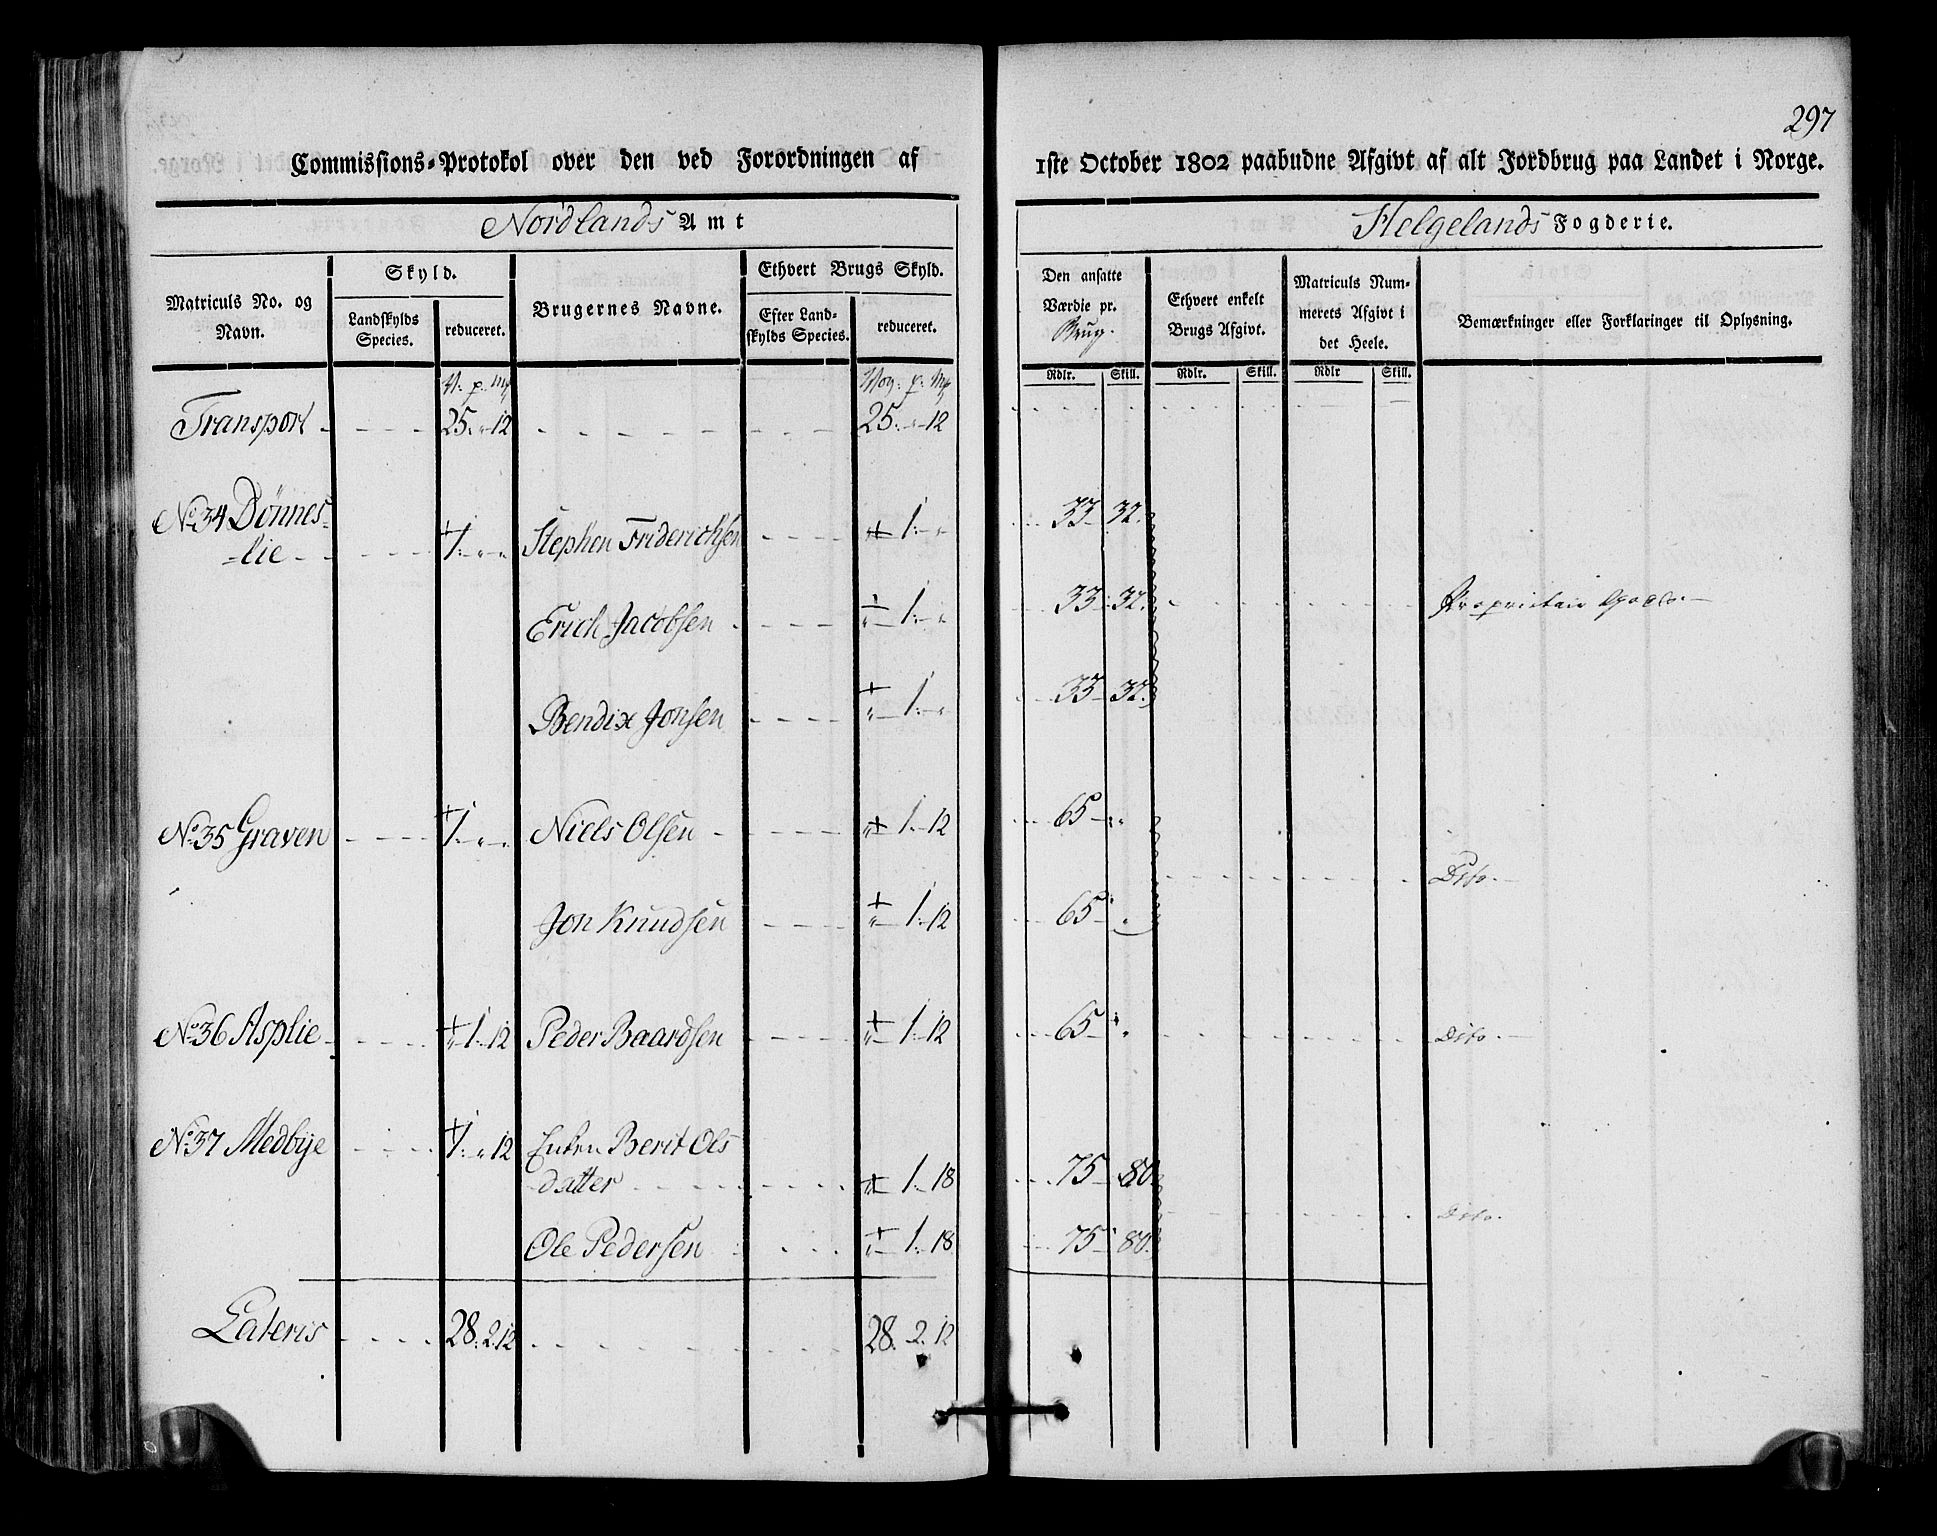 297
Commissions-Protokol over den ved Forordningen af 1ste October 1802 paabudne Afgivt af alt Jordbrug paa Landet i Norge.
Nordlands Amt
Helgelands Fogderie.
Matriculs No. og Navn.
Skyld.
Landskylds Species.
reduceret.
Brugernes Navne.
Ethvert Brugs Skyld.
Efter Landskylds Species.
reduceret.
Den ansatte Værdie pr. Brug.
Ethvert enkelt Brugs Afgivt.
Matriculs Nummerets Afgivt i det Heele.
Bemærkninger eller Forklaringer til Oplysning.
V. p. Mk
Vog. p. Mk
Rdlr. Skill. Rdlr. Skill. Rdlr Skill.
Transport 25. " 12 25. " 12
No. 34 Dønnes-
lie 1. " " Stephen Friderichsen " 1. " 33 32.
Erich Jacobsen " 1. " 33 32. Proprietair Gods.
Bendix Jonsen " 1. " 33 32.
No. 35 Graven 1. " " Niels Olsen " 1. 12 65 "
Dito.
Jon Knudsen " 1. 12 65 "
No. 36 Asplie " 1. 12 Peder Baardsen " 1. 12 65 " Dito.
No. 37 Medbye 1. " 12 Enken Berit Ols
datter " 1. 18 75 80.
Dito.
Ole Pedersen " 1. 18 75 80.
Lateris 28. 2. 12 28. 2. 12